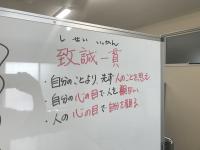 しせい いっかん
致誠一貫
・自分のことより、先ず人のことを思え
・自分の心の目で人を観ない
・人の心の目で自分を観る